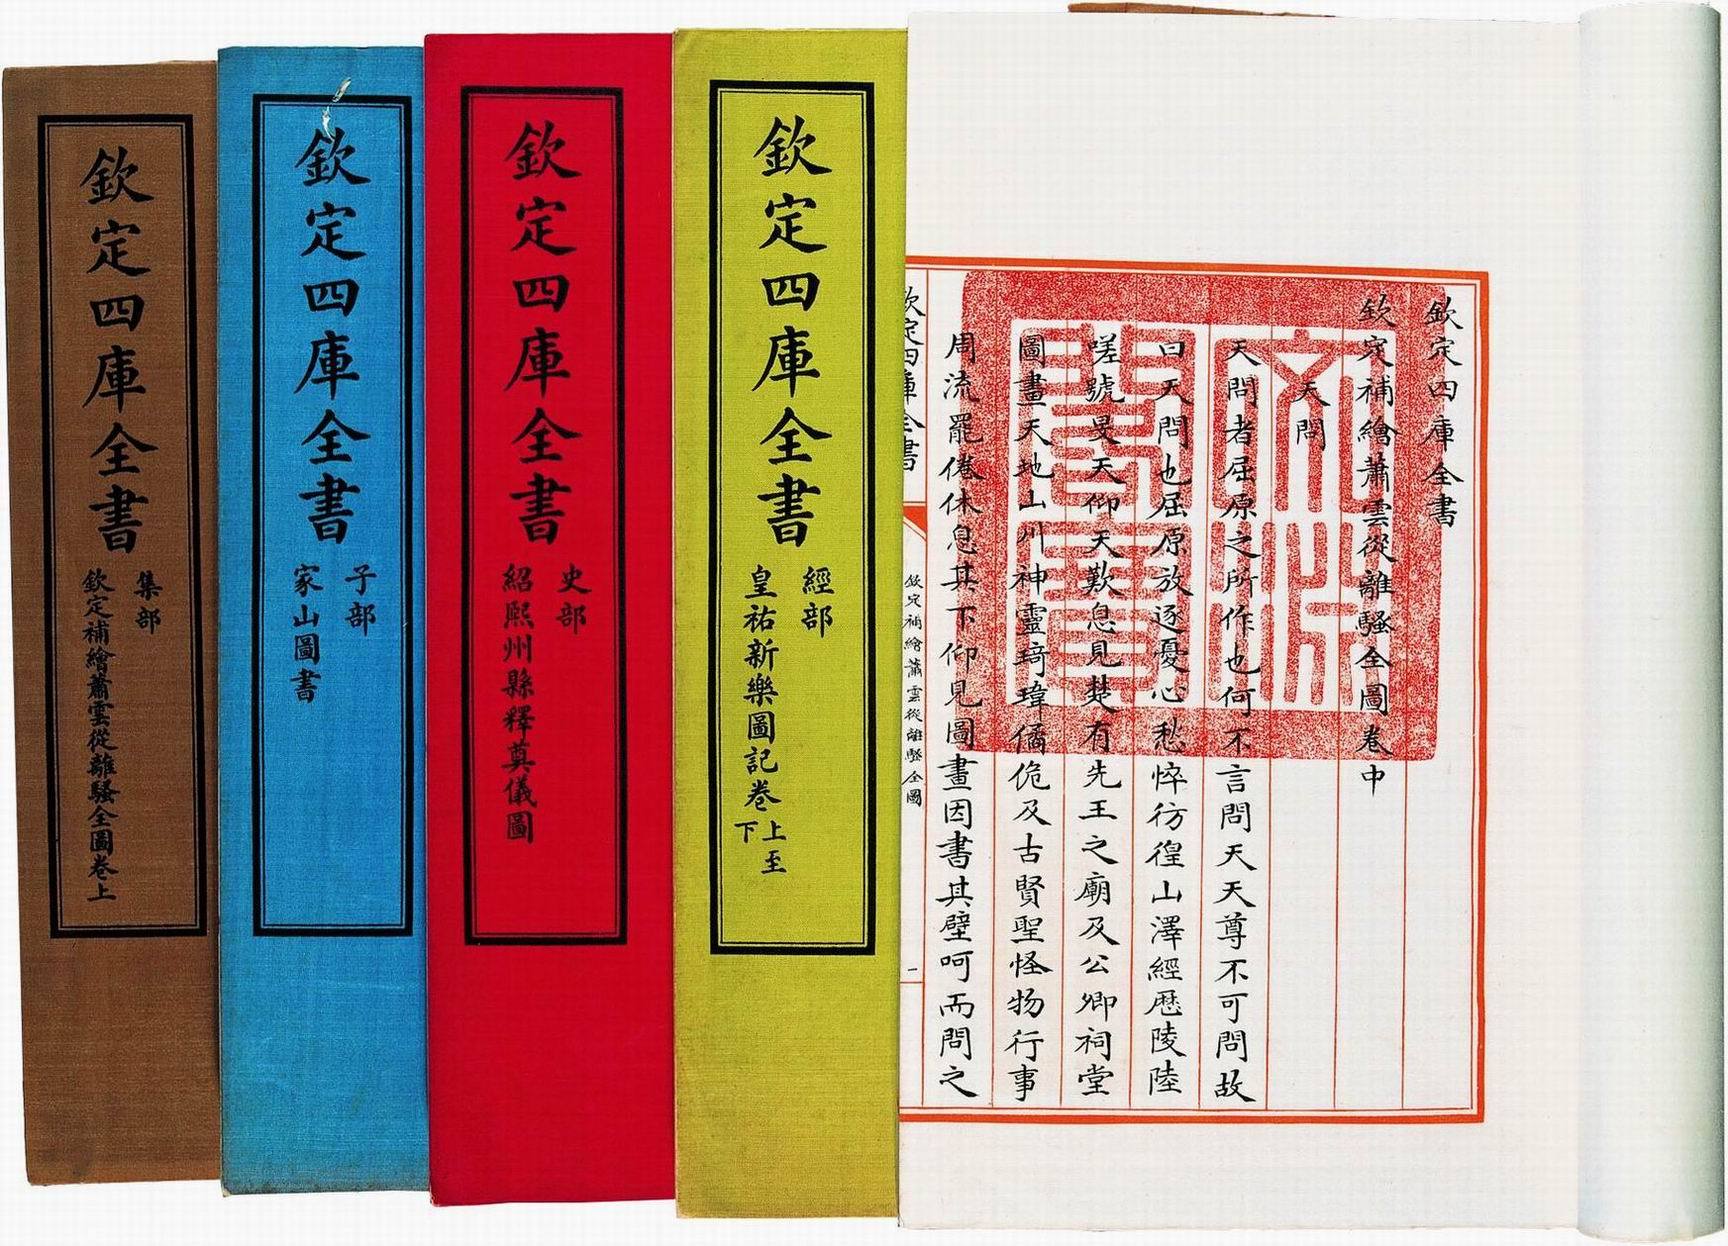 欽定四庫全書
欽定補繪蕭雲從離騷全圖卷中
天問
天問者屈原之所作也何不言問天天尊不可問故
曰天問也屈原放逐憂心愁悴彷徨山澤經厯陵陸
嗟號旻天仰天歎息見楚有先王之廟及公卿祠堂
圖畫天地山川神靈琦瑋僪佹及古賢聖怪物行事
周流罷倦休息其下仰見圖畫因書其壁呵而問之
文淵
閣寶
欽定四庫全書
欽定補繪蕭雲從離騷全圖
一
欽定四庫全書
經部
皇祐新樂圖記卷上至下
欽定四庫全書
史部
紹熙州縣釋奠儀圖
欽定四庫全書
子部
家山圖書
欽定四庫全書
集部
欽定補繪蕭雲從離騷全圖卷上